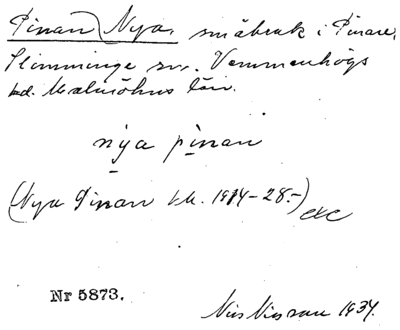 Pinan, Nya, småbruk i Pinare,
Slimminge sn. Vemmenhögs
hd. Malmöhus län.
nya pinan
(Nya Pinan kk. 1914-28.-) etc
Nr 5873.
Nils Nilsson 1934.